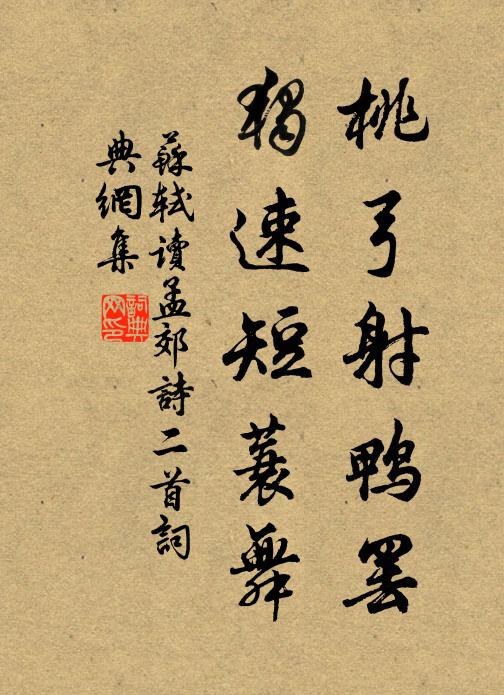 桃弓射鴨罷
獨速短蓑舞
蘇軾讀孟郊詩二首詞
典網集
詞典網印